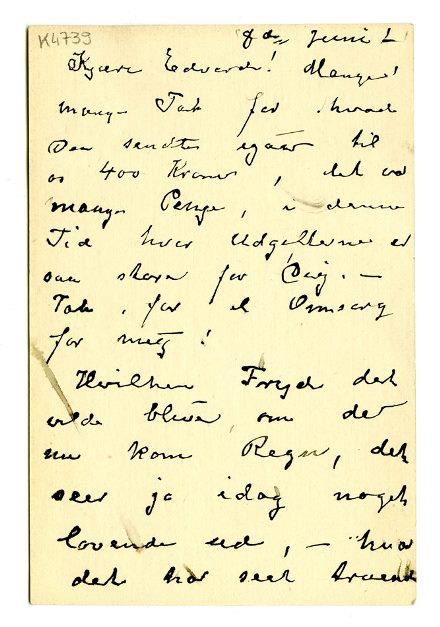 K4739
8de Juni
Kjære Edvard! Mange!
mange Tak for hvad
Du sendte igaar til
os 400 Kroner, det var
mange Penge, i denne
Tid hvor Udgifterne er
saa store for Dig. —
Tak, for al Omsorg
for mig!
Hvilken Fryd det
vilde blive, om det
nu kom Regn, det
seer jo idag noget
lovende ud, — hvor
det har seet truende